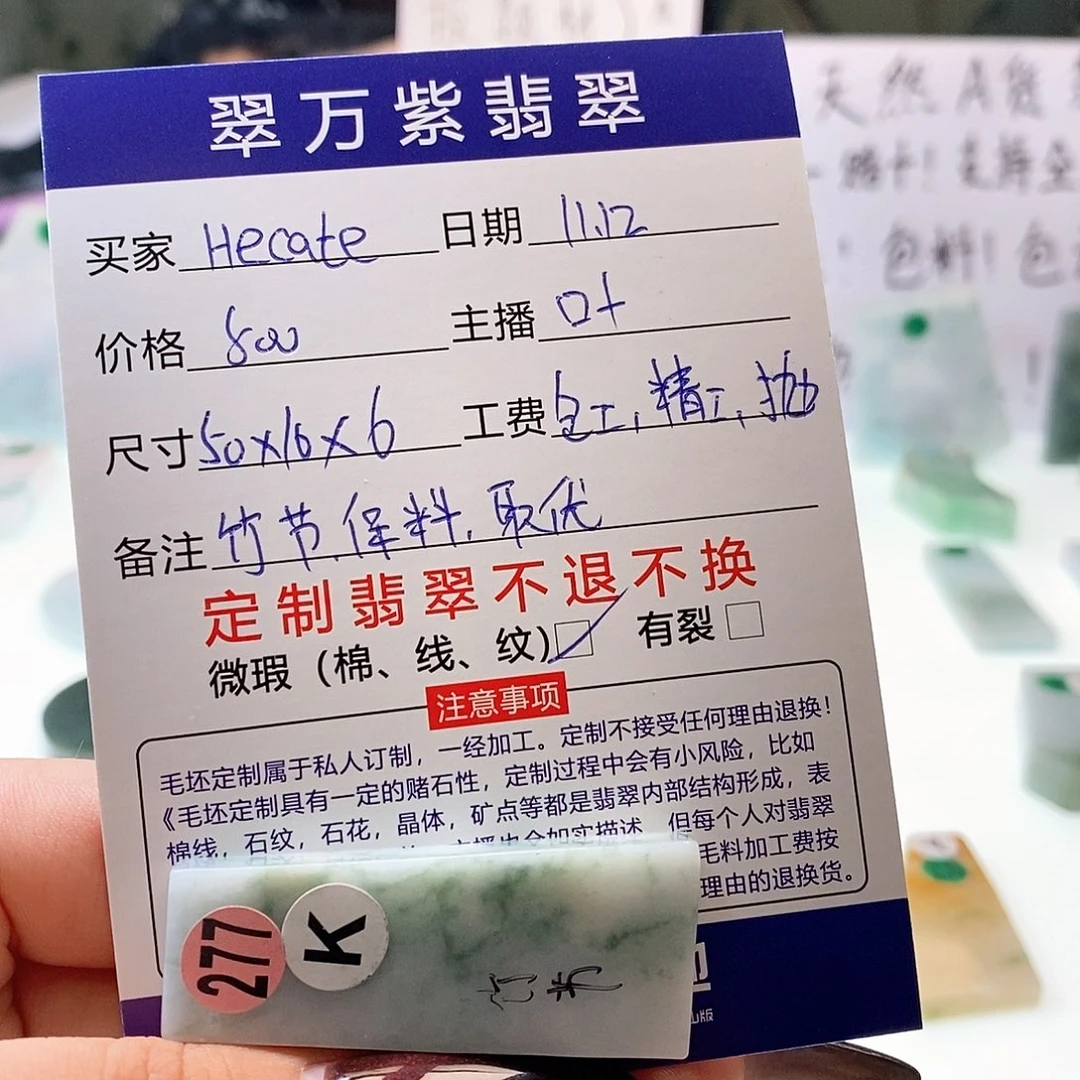 翠万紫翡翠
买家 Hecate 日期 11.12
价格 800 主播 叶
尺寸 50x16x6 工费 包工,精工,抛
备注 竹节.保料.取优
定制翡翠不退不换
微瑕（棉、线、纹） 有裂
注意事项
毛坯定制属于私人订制，一经加工。定制不接受任何理由退换！
《毛坯定制具有一定的赌石性，定制过程中会有小风险，比如
棉线，石纹，石花，晶体，矿点等都是翡翠内部结构形成，表
主播也会如实描述，但每个人对翡翠
毛料加工费按
理由的退换货。
277
K
竹节
天然 A
支持全
包料！包